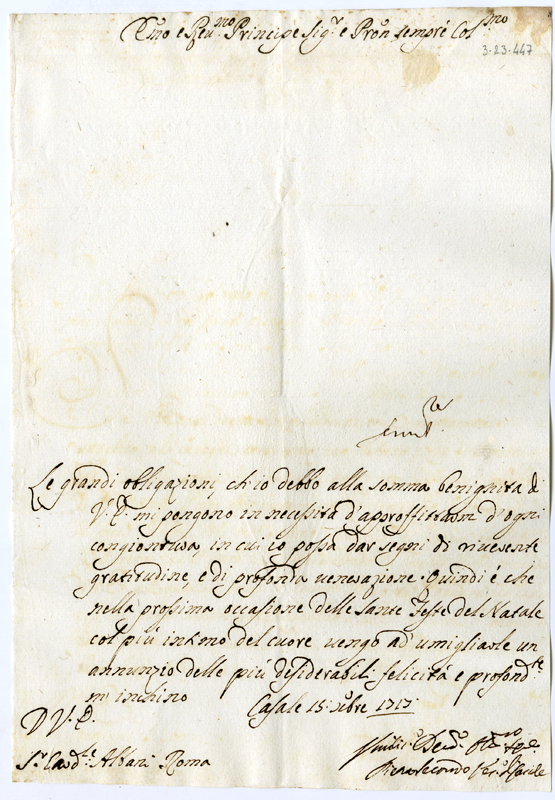 Em̃o e Reu.mo Principe Sig.r e Pron̄ sempre Col.mo
3-23-447
Le grandi obligazioni, ch'io debbo alla somma benignità di
V. E. mi pongono in necessità d'approffittarmi d'ogni
congiontura, in cui io possa dar segni di riuerente
gratitudine, e di profonda uenerazione. Quindi é che
nella prossima occasione delle Sante Feste del Natale
col più intimo del cuore uengo ad' umigliarle un
annunzio delle più desiderabili felicità e profond.te
m' inchino
Casale 15 Xbre 1717
D V. E.
S.r Card.le Albani Roma